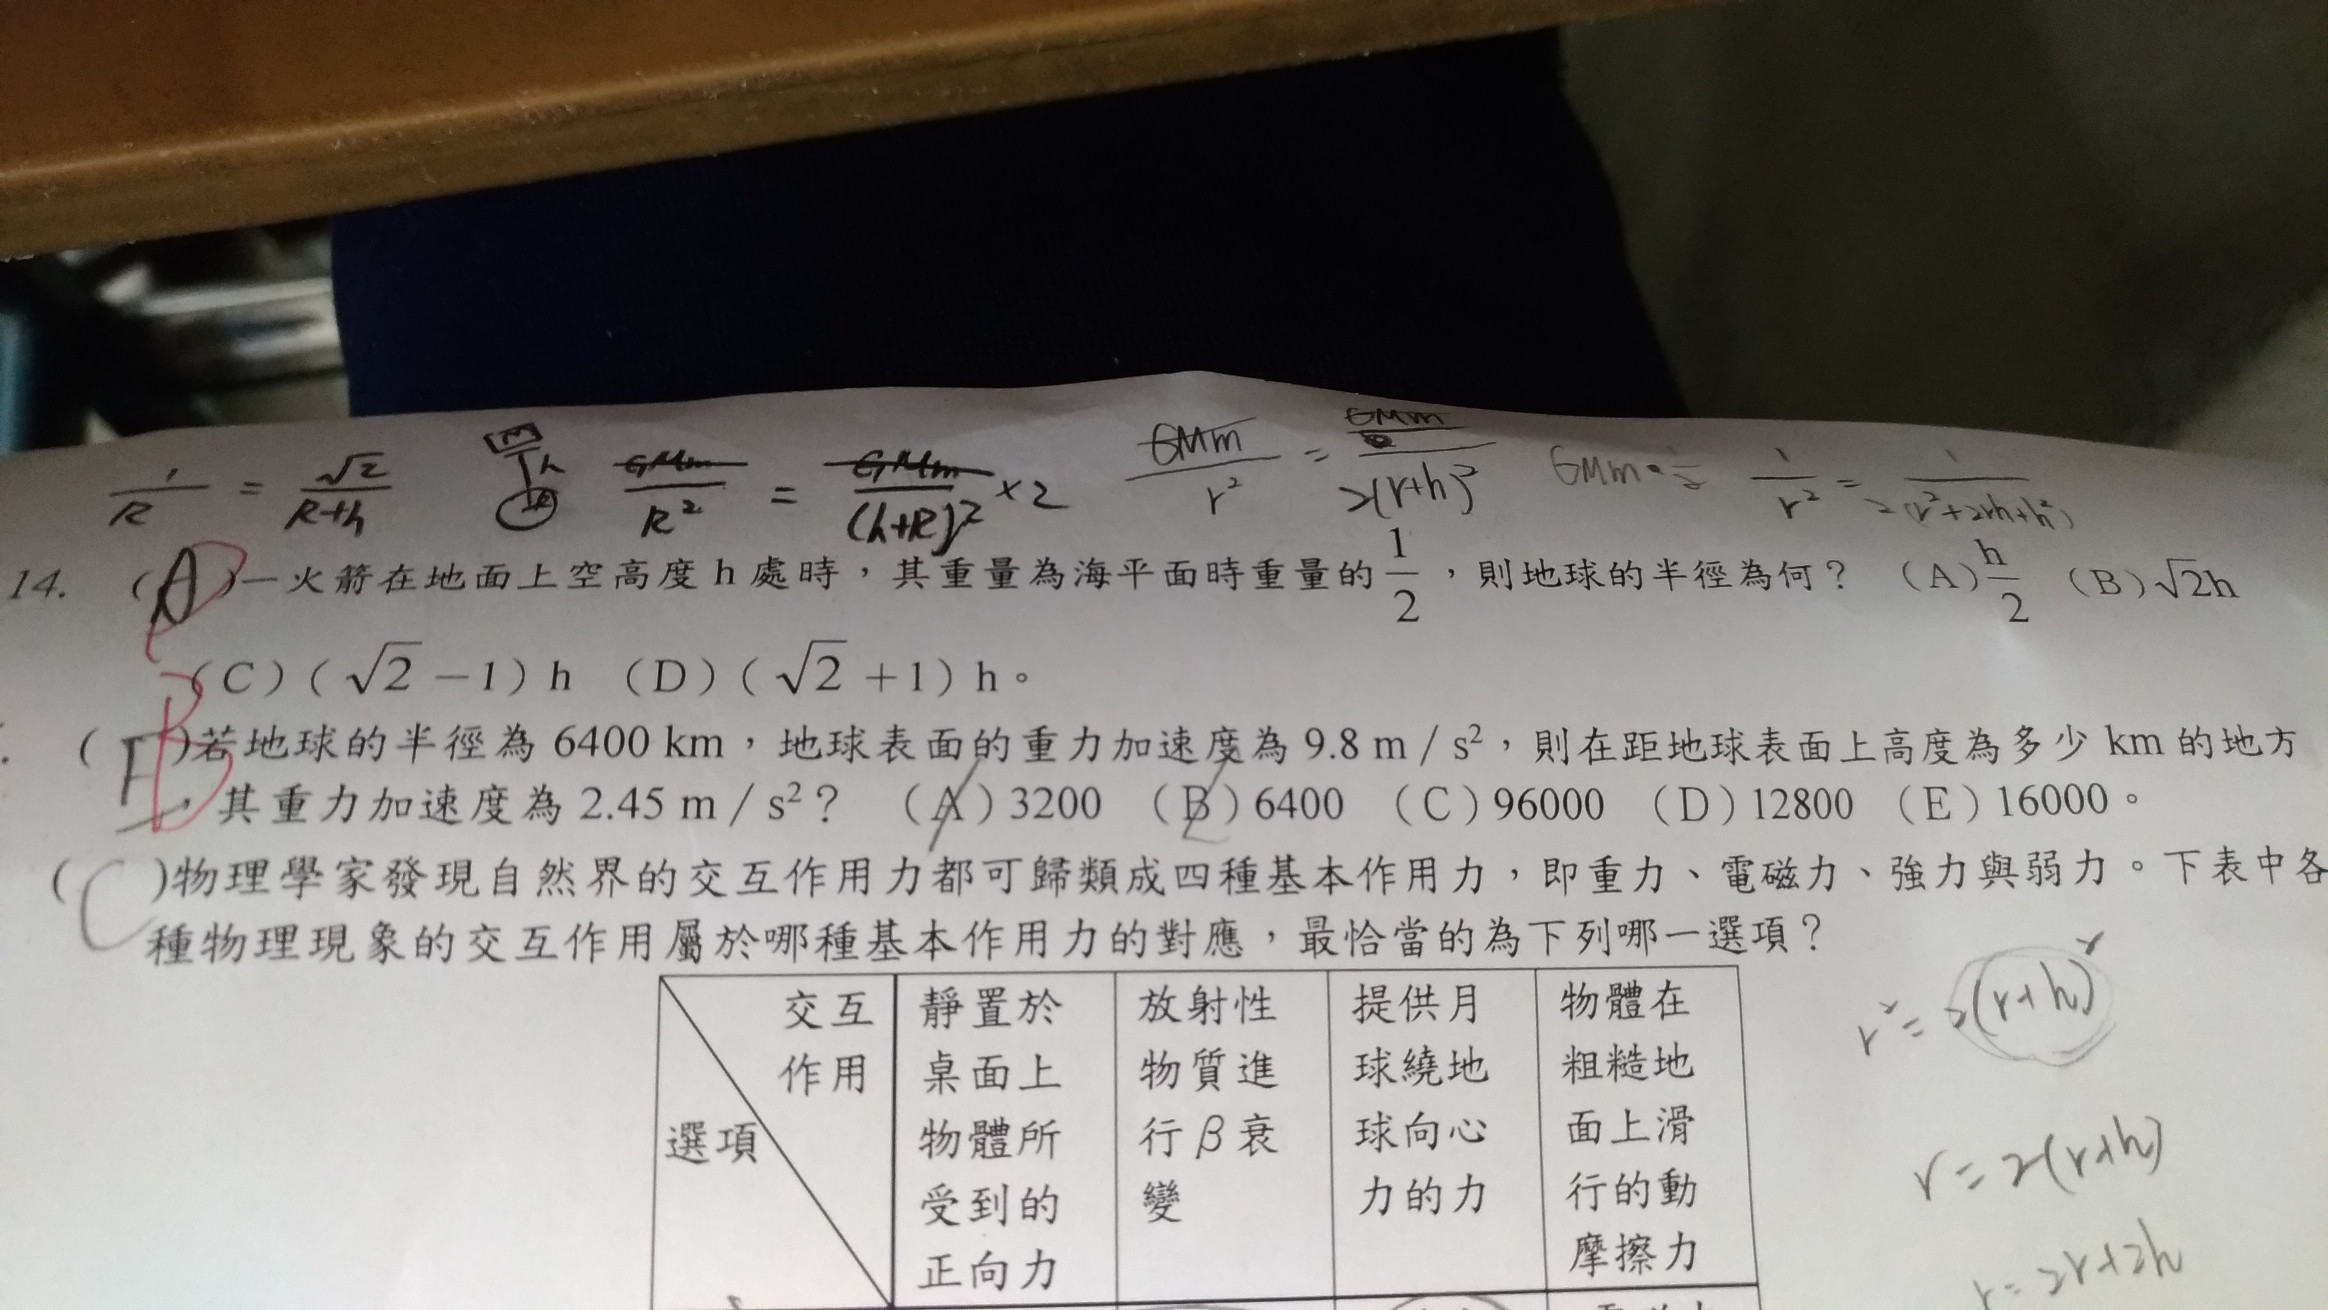 1/R = √2/(R+h)
M h R
GMm/R² = GMm/(h+R)² ×2
GMm/r² = GMm/2(r+h)²
GMm · 1/2
1/r² = 1/2(r²+2rh+h²)
14. (A)一火箭在地面上空高度 h 處時，其重量為海平面時重量的 1/2 ，則地球的半徑為何？ (A) h/2 (B)√2h
(C)(√2 －1)h (D)(√2 +1)h。
( )若地球的半徑為 6400 km，地球表面的重力加速度為 9.8 m／s²，則在距地球表面上高度為多少 km 的地方
B
，其重力加速度為 2.45 m／s²？ (A)3200 (B)6400 (C)96000 (D)12800 (E)16000。
(C)物理學家發現自然界的交互作用力都可歸類成四種基本作用力，即重力、電磁力、強力與弱力。下表中各
種物理現象的交互作用屬於哪種基本作用力的對應，最恰當的為下列哪一選項？
交互
作用
選項
靜置於
桌面上
物體所
受到的
正向力
放射性
物質進
行β衰
變
提供月
球繞地
球向心
力的力
物體在
粗糙地
面上滑
行的動
摩擦力
r² = 2(r+h)²
r = 2(r+h)
r = 2r+2h